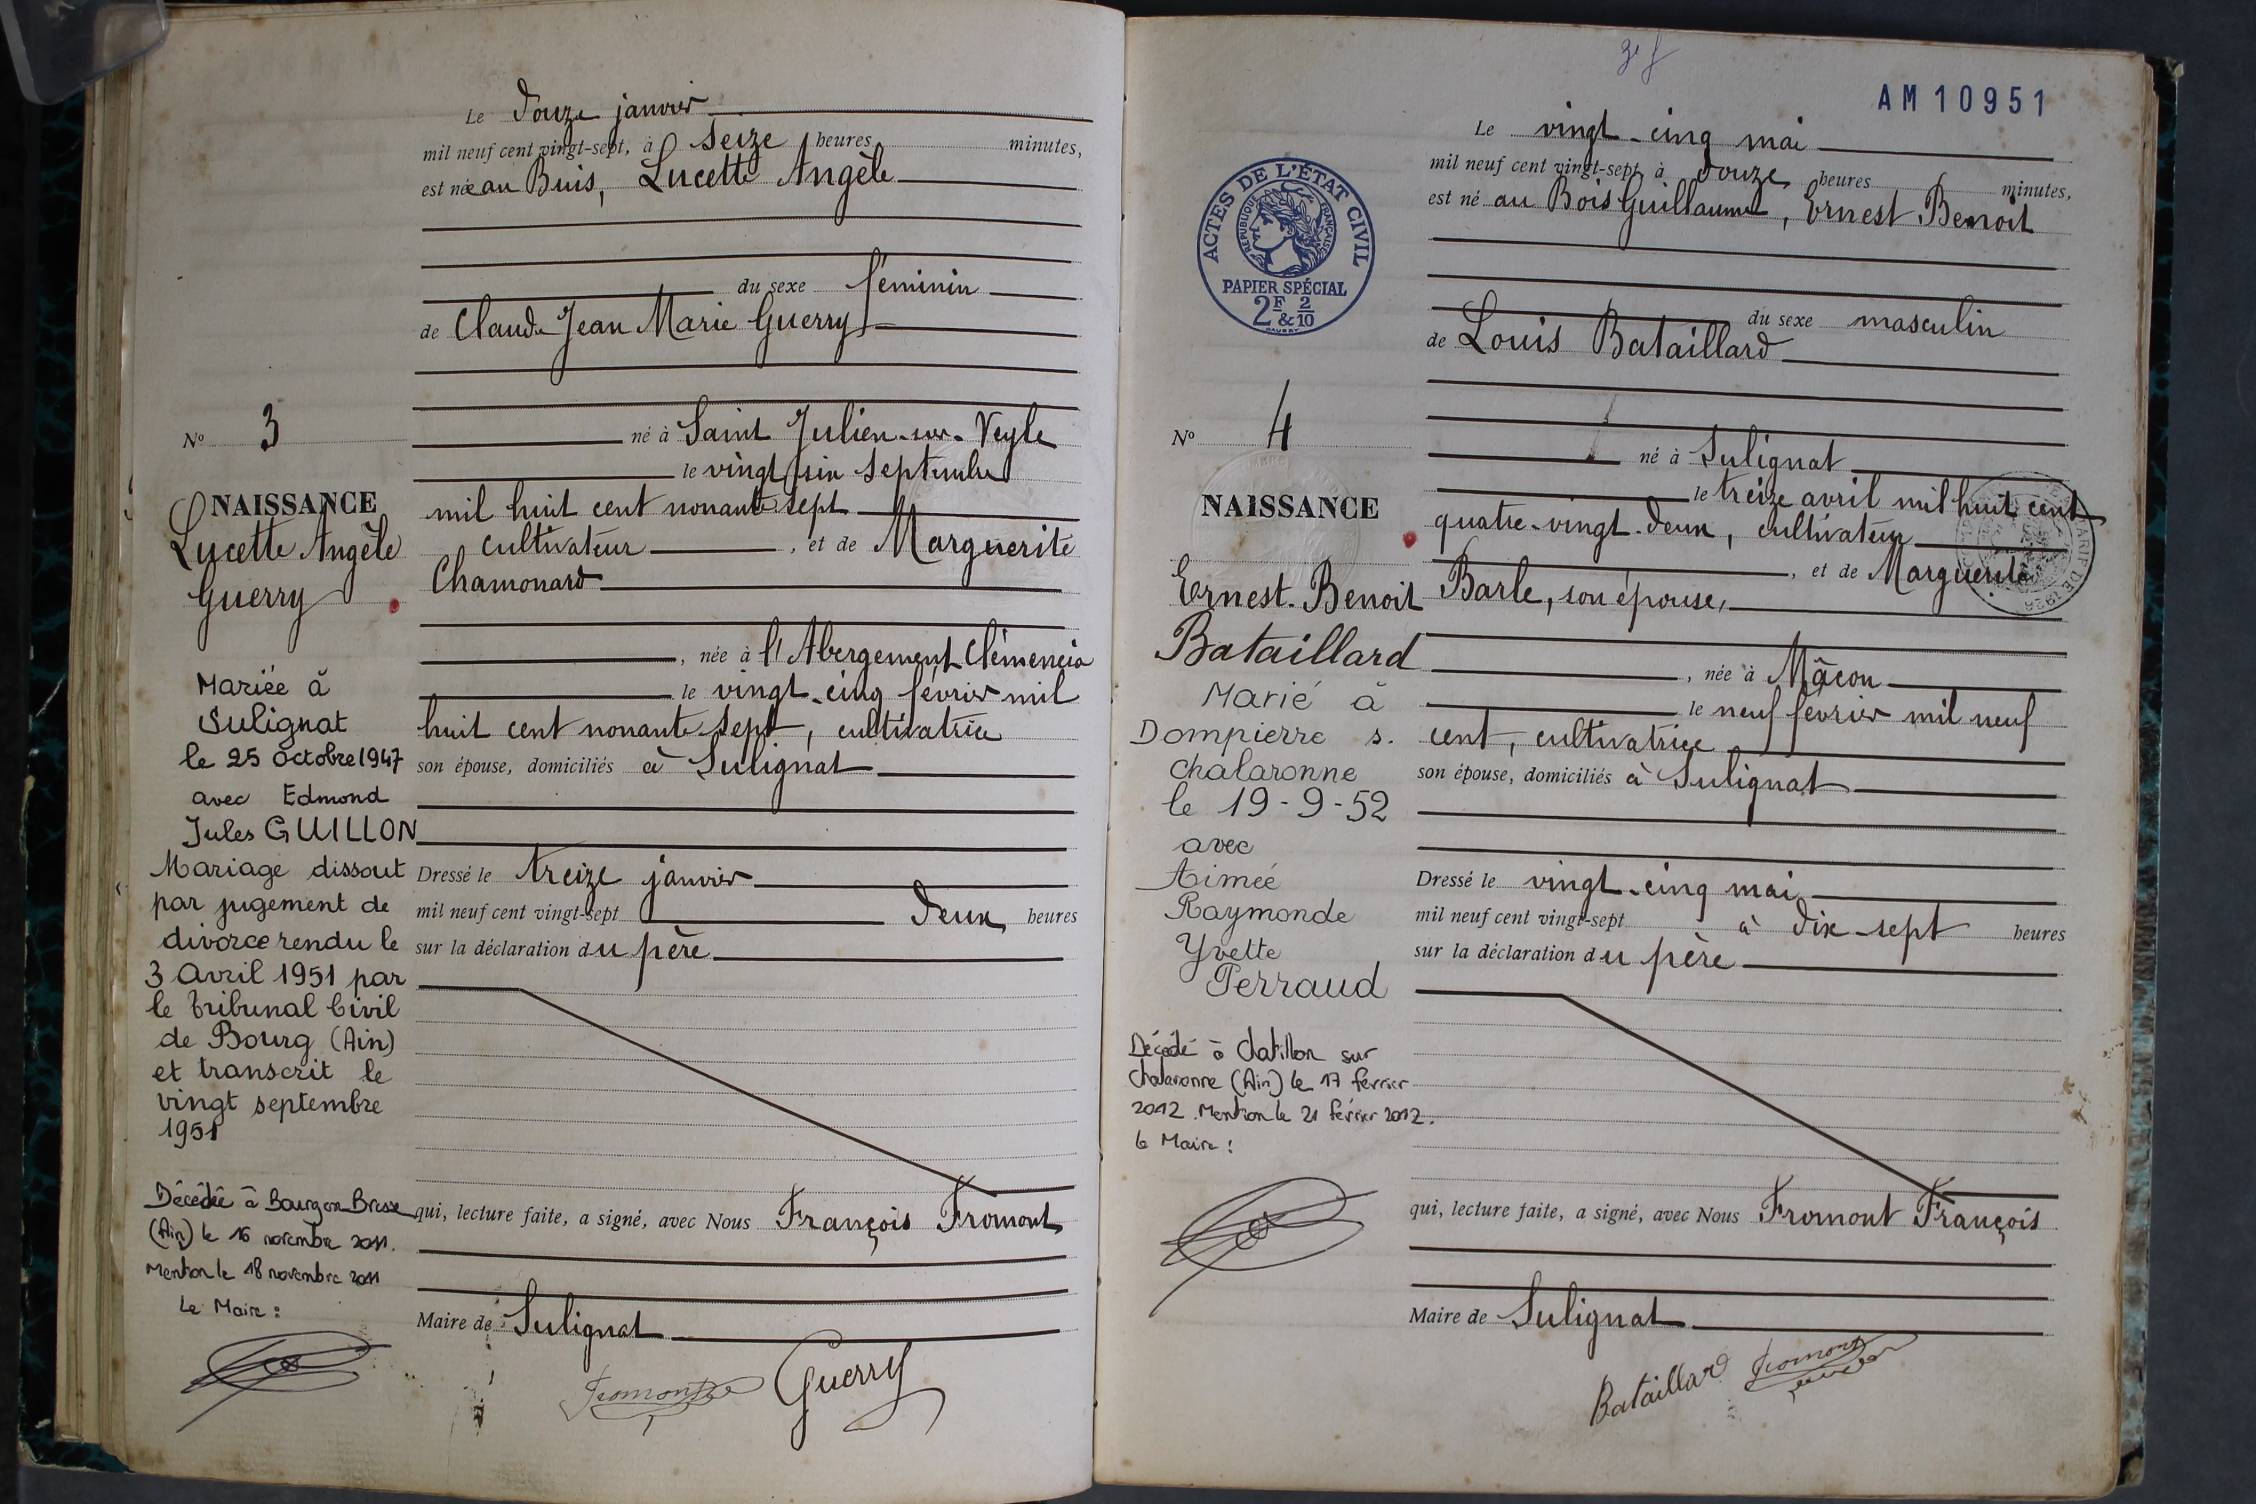 Le douze janvier
mil neuf cent vingt-sept, à seize heures minutes,
est née au Buis, Lucette Angèle
du sexe féminin
de Claude Jean Marie Guerry
né à Saint Julien-sur-Veyle
le vingt six septembre
mil huit cent nonante sept
cultivateur, et de Marguerite
Chamonard
, née à l'Abergement Clémencia
le vingt-cinq février mil
huit cent nonante-sept, cultivatrice
son épouse, domiciliés à Sulignat
Dressé le treize janvier
mil neuf cent vingt-sept deux heures
sur la déclaration du père
qui, lecture faite, a signé, avec Nous François Fromont
Maire de Sulignat
Fromont Guerry
No 3
NAISSANCE
Lucette Angèle
Guerry
Mariée à
Sulignat
le 25 octobre 1947
avec Edmond
Jules GUILLON
Mariage dissout
par jugement de
divorce rendu le
3 avril 1951 par
le tribunal Civil
de Bourg (Ain)
et transcrit le
vingt septembre
1951
Décédée à Bourg en Bresse
(Ain) le 16 novembre 2011.
Mention le 18 novembre 2011
Le Maire :
AM 10951
Le vingt-cinq mai
mil neuf cent vingt-sept à douze heures minutes,
est né au Bois Guillaume, Ernest Benoit
du sexe masculin
de Louis Bataillard
né à Sulignat
le treize avril mil huit cent
quatre-vingt-deux, cultivateur
, et de Marguerite
Barle, son épouse,
, née à Mâcon
le neuf février mil neuf
cent, cultivatrice
son épouse, domiciliés à Sulignat
Dressé le vingt-cinq mai
mil neuf cent vingt-sept à dix-sept heures
sur la déclaration du père
qui, lecture faite, a signé, avec Nous Fromont François
Maire de Sulignat
Bataillard Fromont
ACTES DE L'ÉTAT CIVIL
RÉPUBLIQUE FRANÇAISE
PAPIER SPÉCIAL
2F & 2/10
No 4
NAISSANCE
Ernest-Benoit
Bataillard
Marié à
Dompierre s.
chalaronne
le 19-9-52
avec
Aimée
Raymonde
Yvette
Perraud
Décédé à Chatillon sur
Chalaronne (Ain) le 17 février
2012. Mention le 21 février 2012.
Le Maire :